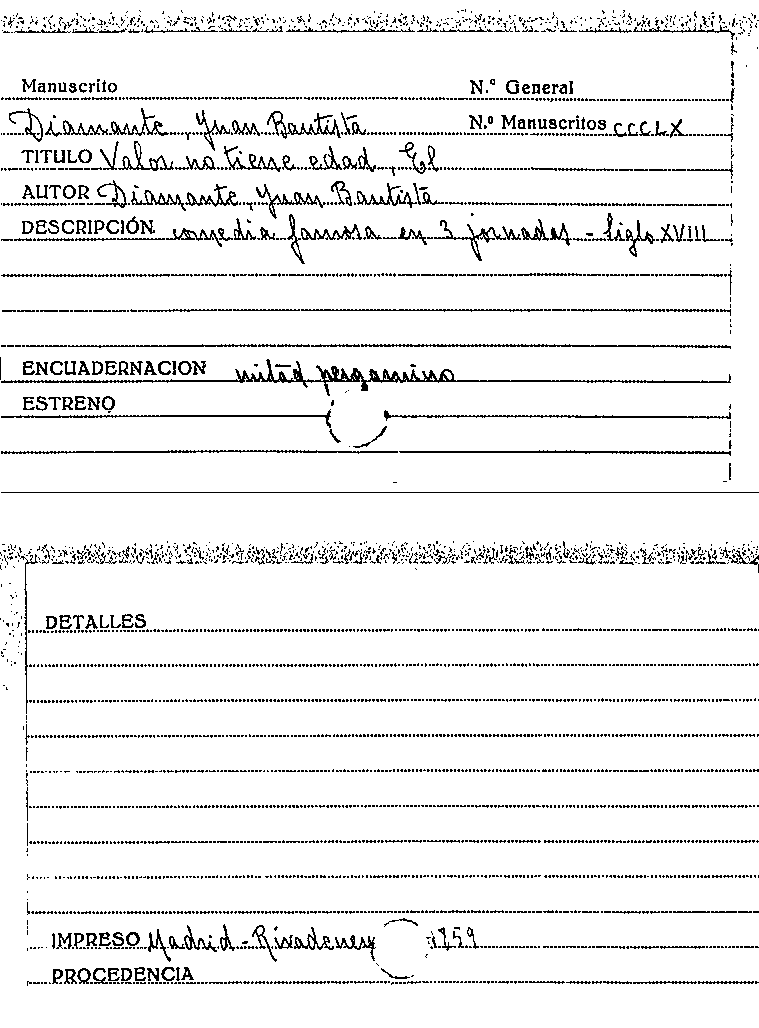 Manuscrito N.º General
Diamante, Juan Bautista N.º Manuscritos CCCLX
TITULO Valor no tiene edad, El
AUTOR Diamante, Juan Bautista
DESCRIPCIÓN comedia famosa en 3 jornadas - Siglo XVIII
ENCUADERNACION mitad pergamino
ESTRENO
DETALLES
IMPRESO Madrid - Rivadeney 1859
PROCEDENCIA